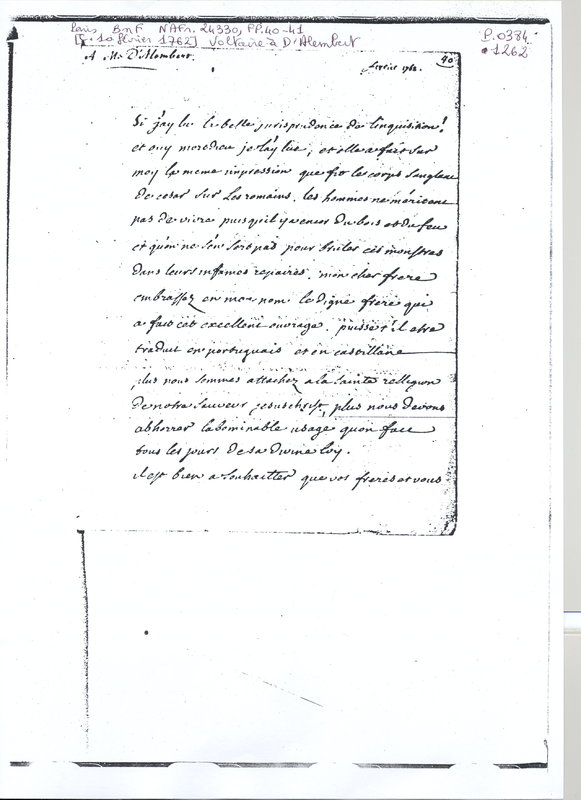 Paris BnF NAFr. 24330, pp. 40-41
10 février 1762] Voltaire à D'Alembert
P.0384
1262
A Mr. D'Alembert.
février 1762.
40
Si j'ay lu la belle jurisprudence de l'inquisition!
et ouy mordieu je l'ay lue, et elle a fait sur
moy la meme impression que fit le corps sanglant
de cesar sur les romains. les hommes ne méritent
pas de vivre puisqu'il y a encor du bois et du feu
et qu'on ne s'en sert pas pour bruler ces monstres
dans leurs infames repaires. mon cher frere
embrassez en mon nom le digne frere qui
a fait cet excellent ouvrage. puisse t'il etre
traduit en portuguais et en castillane
plus nous sommes attachez a la sainte relligion
de notre sauveur jesuschrist, plus nous devons
abhorrer l'abominable usage quon fait
tous les jours de sa divine loy.
il est bien a souhaitter que vos freres et vous